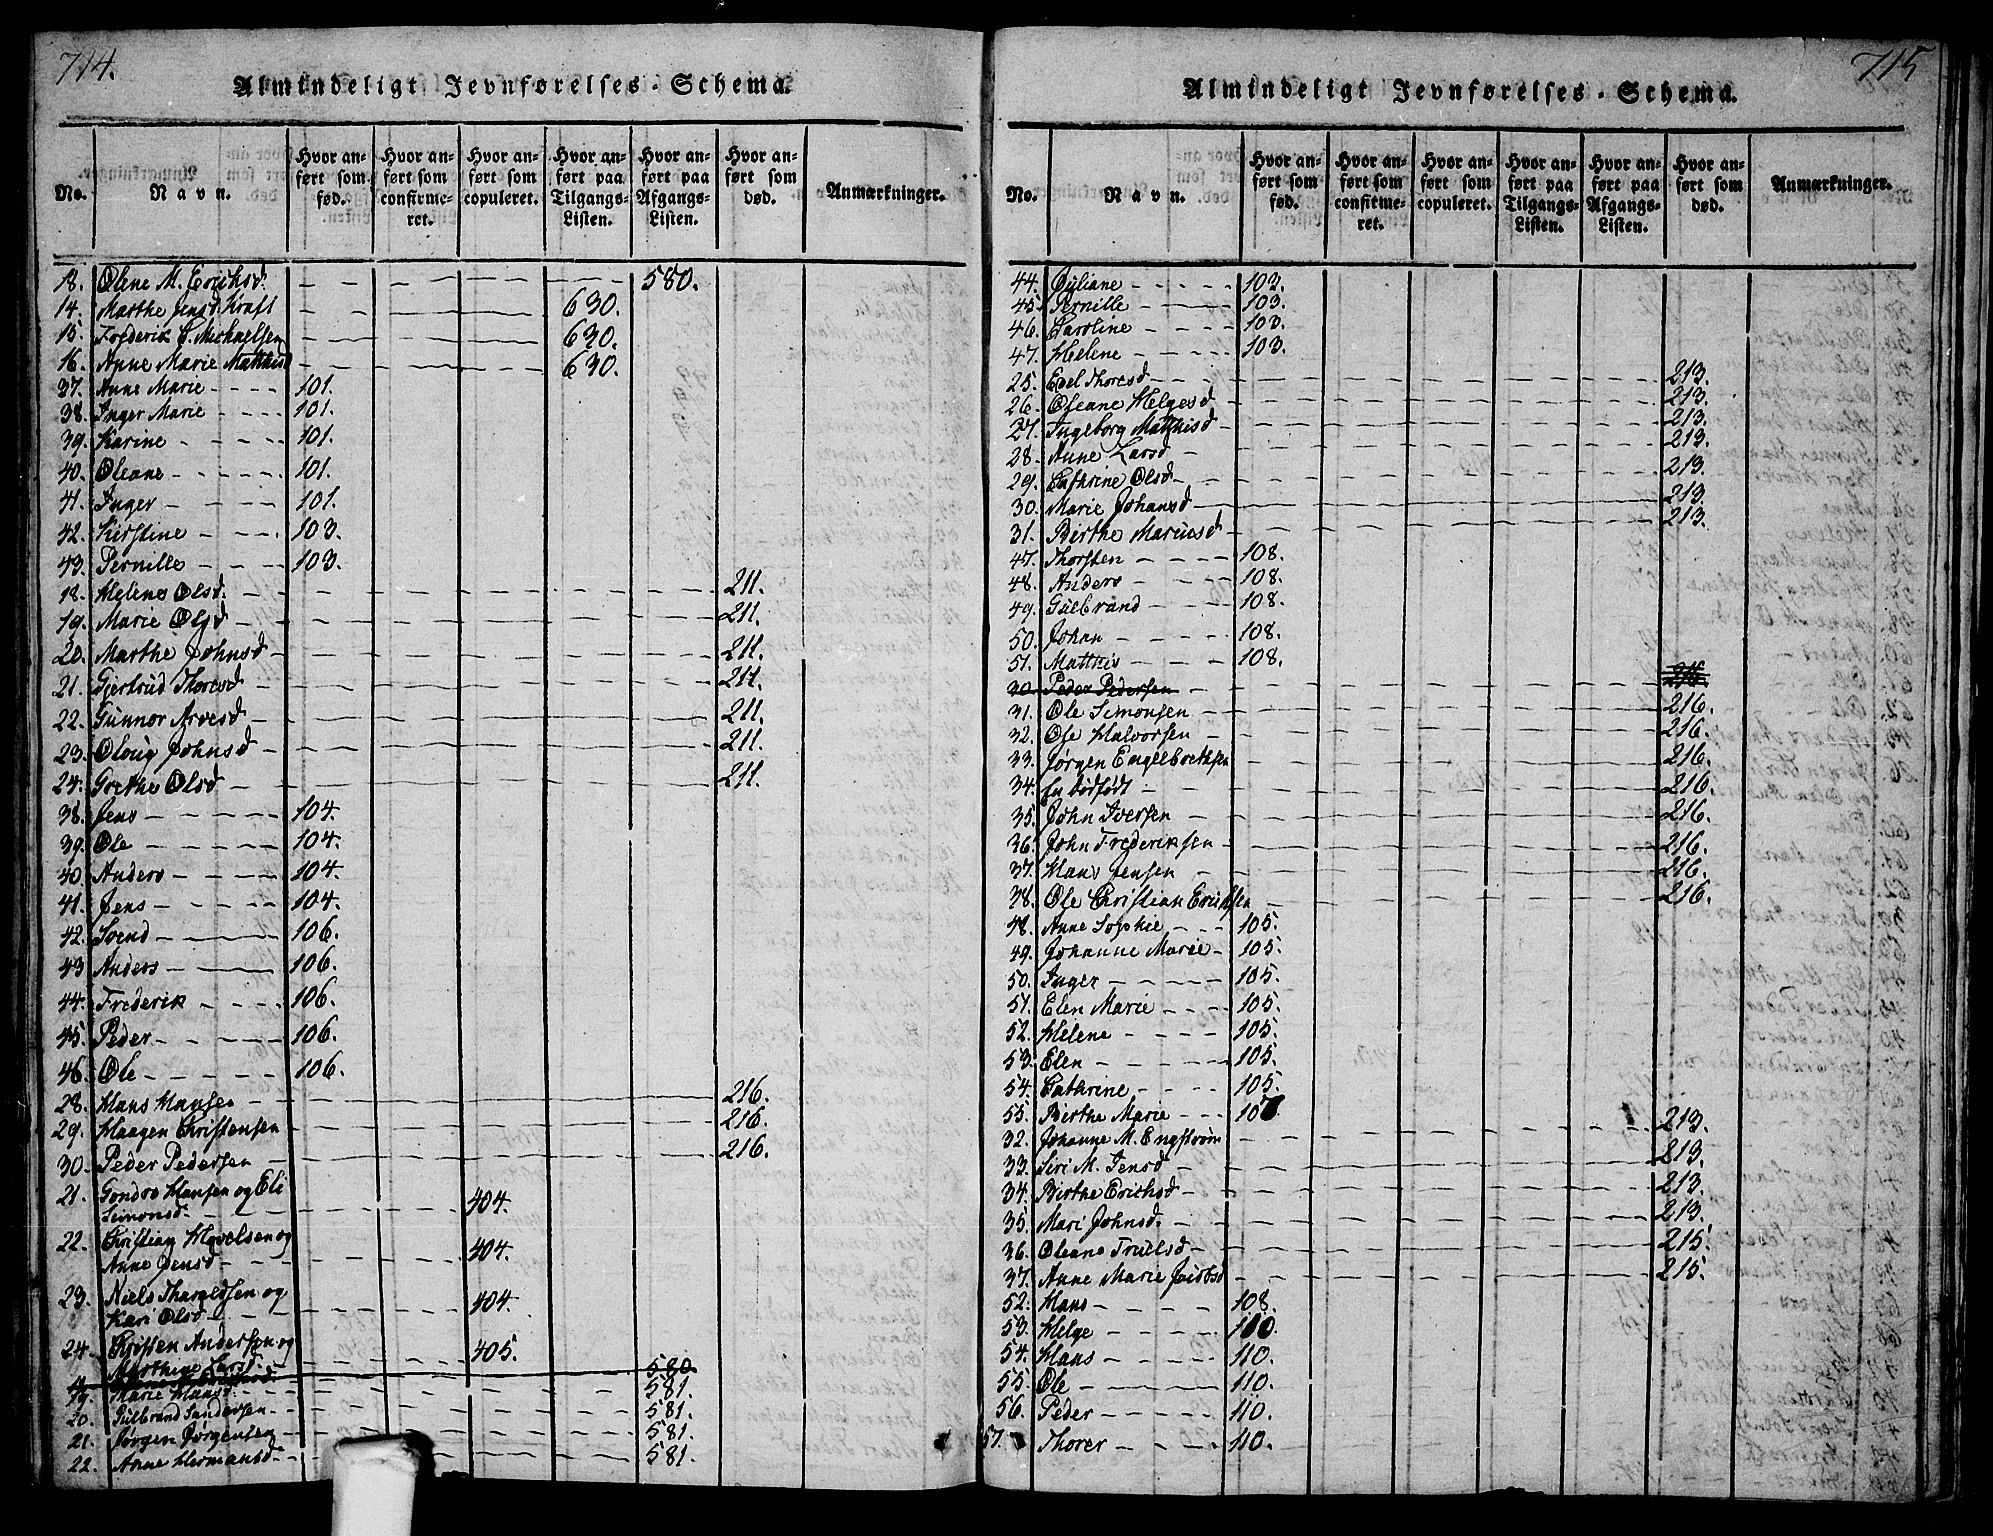 714.
Almindeligt Jevnførelses-Schema.
No. Navn. Hvor anført som fød. Hvor anført som confirmeret. Hvor anført som copuleret. Hvor anført paa Tilgangs-Listen. Hvor anført paa Afgangs-Listen. Hvor anført som død. Anmærkninger.
18. Olene M. Ericksd. 580.
14. Marthe Jensd. Kraft 630.
15. Frederik C. Michaelsen 630.
16. Anne Marie Matthisd 630.
37. Anne Marie 101.
38. Inger Marie 101.
39. Karine 101.
40. Oleane 101.
41. Inger 101.
42. Kirstine 103.
43. Pernille 103.
18. Helene Olsd. 211.
19. Marie Olsd 211.
20. Marthe Johnsd 211.
21. Gjertrud Thoresd 211.
22. Gunnor Arvesd 211.
23. Oloug Johnsd 211.
24. Grethe Olsd 211.
38. Jens 104.
39. Ole 104.
40. Anders 104.
41. Jens 104.
42. Svend 106.
43 Anders 106.
44. Frederik 106.
45. Peder 106.
46. Ole 106.
28. Hans Hansen 216.
29. Haagen Christensen 216.
30. Peder Pedersen 216.
21. Gondro Hansen og Eli
Simonsd. 404.
22. Christian Hovelsen og
Anne Jensd 404.
23. Niels Tharaldsen og
Kari Olsd 404.
24. Christen Andersen og
Marthine Larsd 405.
580
19. Marie Hansd. 581.
20. Gulbrand Sandersen 581.
21. Jørgen Jørgensen 581.
22. Anne Hermansd. 581.
715
Almindeligt Jevnførelses-Schema.
No. Navn. Hvor anført som fød. Hvor anført som confirmeret. Hvor anført som copuleret. Hvor anført paa Tilgangs-Listen. Hvor anført paa Afgangs-Listen. Hvor anført som død. Anmærkninger.
44. Juliane 103.
45 Pernille 103.
46. Caroline 103.
47. Helene 103.
25. Evel Thoresd 213.
26. Oleane Helgesd 213.
27. Ingeborg Matthisd 213.
28. Anne Larsd 213.
29. Cathrine Olsd 213.
30. Marie Johansd 213.
31. Birthe Mariusd 213.
47. Thorsten 108.
48. Anders 108.
49. Gulbrand 108.
50. Johan 108.
51. Matthis 108.
30 Peder Pedersen 216
31. Ole Simonsen 216.
32. Ole Halvorsen 216.
33. Jørgen Engelbrethsen 216.
34. En dødfødt 216.
35. John Iversen 216.
36. John Frederiksen 216.
37. Hans Jensen 216.
38. Ole Christian Ericksen 216.
48. Anne Sophie 105.
49. Johanne Marie 105.
50. Inger 105.
51. Elen Marie 105.
52. Helene 105.
53. Elen 105.
54. Cathrine 105.
55. Birthe Marie 107
32. Johanne M. Engstrøm 213.
33. Siri M. Jensd 213.
34. Birthe Ericksd 213.
35. Mari Johnsd. 213.
36. Oleane Trulsd 215.
37. Anne Marie Jacobsd 215.
52. Hans 108.
53. Helge 110.
54. Hans 110.
55. Ole 110.
56. Peder 110.
57. Thorer 110.